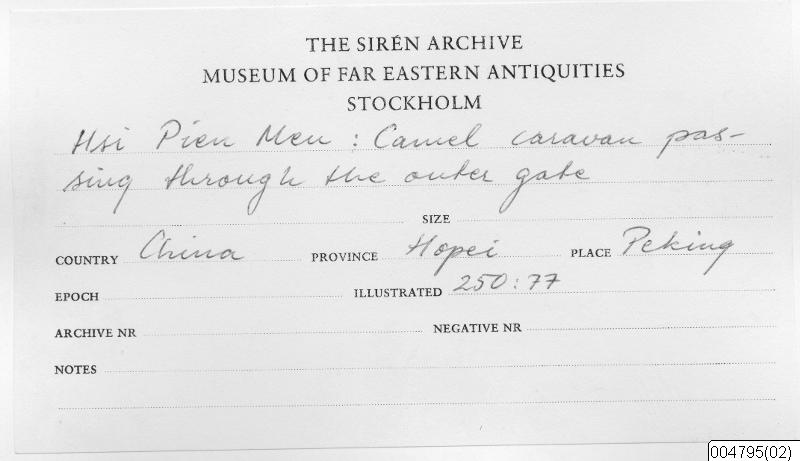 THE SIRÉN ARCHIVE
MUSEUM OF FAR EASTERN ANTIQUITIES
STOCKHOLM
Hsi Pien Men : Camel caravan pas-
sing through the outer gate
SIZE
COUNTRY China PROVINCE Hopei PLACE Peking
EPOCH ILLUSTRATED 250:77
ARCHIVE NR NEGATIVE NR
NOTES
004795(02)